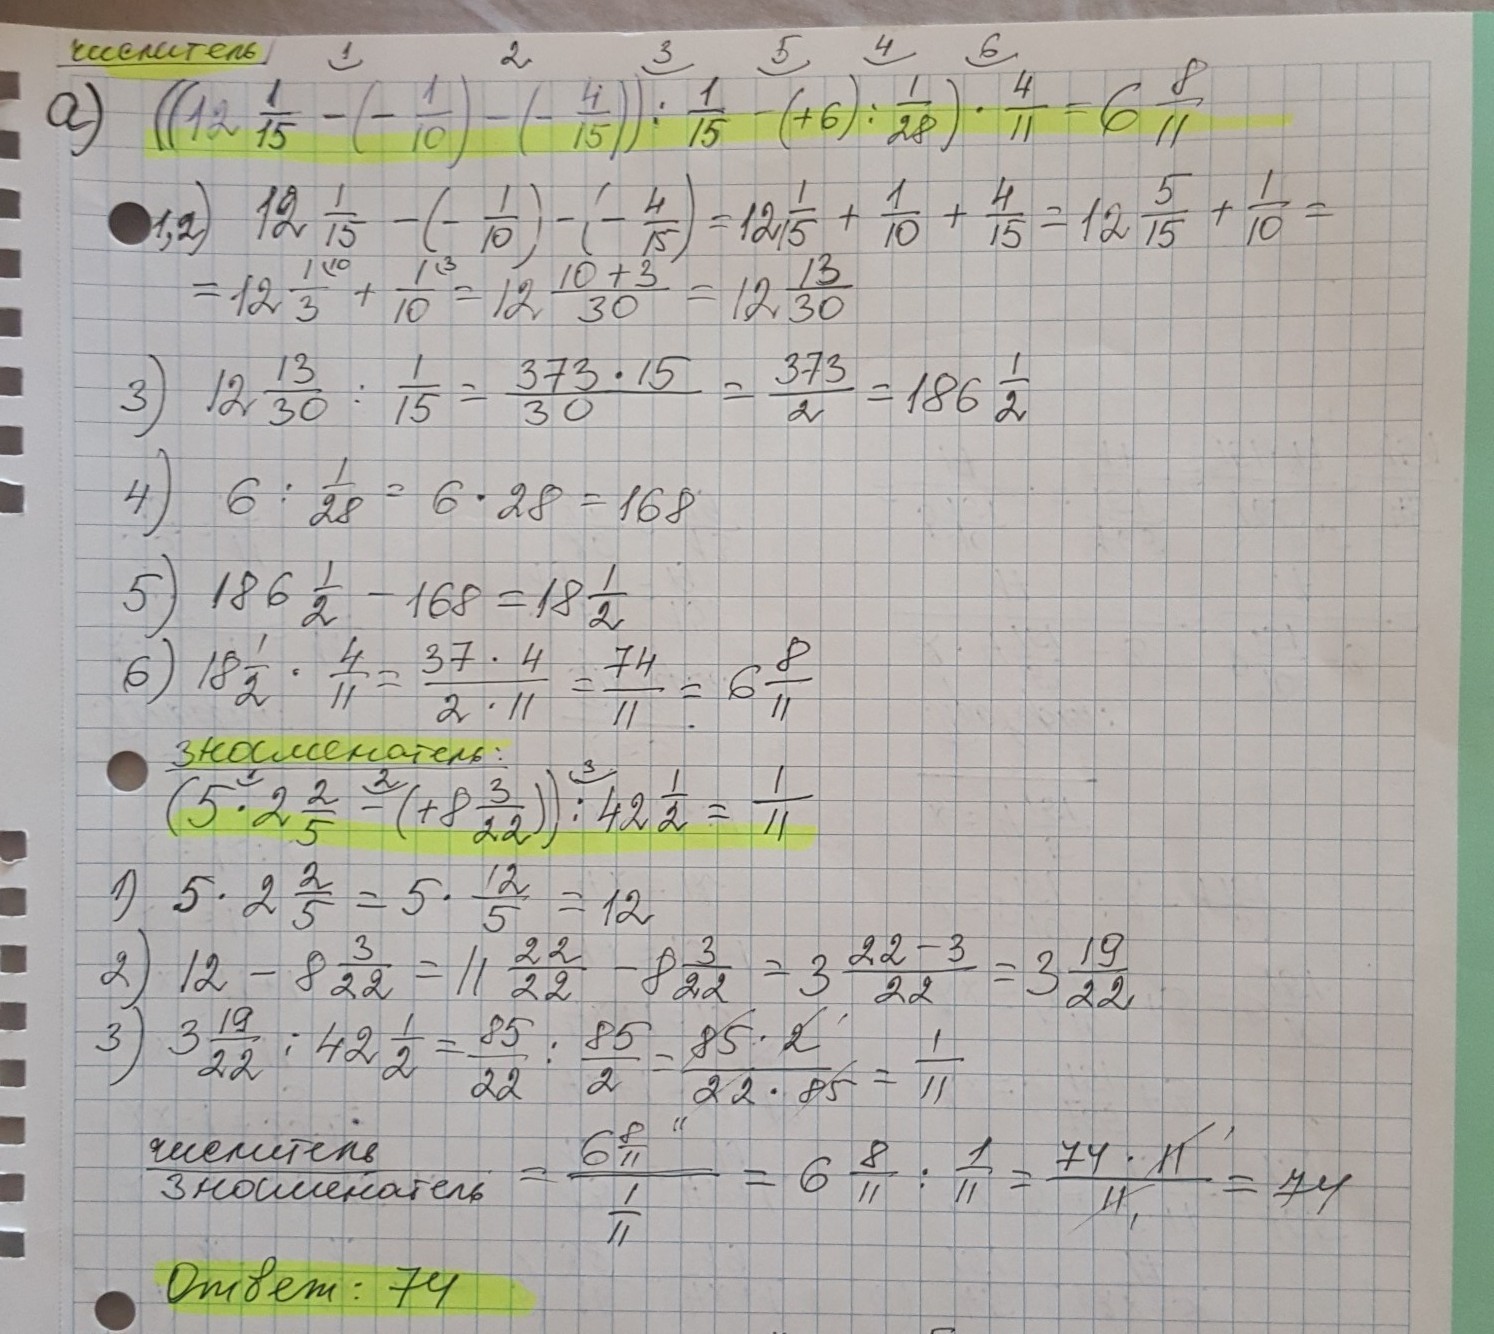 числитель
1 2 3 5 4 6
а) ((12 1/15 - (- 1/10) - (- 4/15)) : 1/15 - (+6) : 1/28) · 4/11 = 6 8/11
1,2) 12 1/15 - (- 1/10) - (- 4/15) = 12 1/15 + 1/10 + 4/15 = 12 5/15 + 1/10 =
= 12 1/3 (10 + 1/10 (3 = 12 (10+3)/30 = 12 13/30
3) 12 13/30 : 1/15 = (373 · 15)/30 = 373/2 = 186 1/2
4) 6 : 1/28 = 6 · 28 = 168
5) 186 1/2 - 168 = 18 1/2
6) 18 1/2 · 4/11 = (37 · 4)/(2 · 11) = 74/11 = 6 8/11
знаменатель:
1 2 3
(5 · 2 2/5 - (+8 3/22)) : 42 1/2 = 1/11
1) 5 · 2 2/5 = 5 · 12/5 = 12
2) 12 - 8 3/22 = 11 22/22 - 8 3/22 = 3 (22-3)/22 = 3 19/22
3) 3 19/22 : 42 1/2 = 85/22 : 85/2 = (85 · 2)/(22 · 85) = 1/11
числитель/знаменатель = (6 8/11)/(1/11) = 6 8/11 : 1/11 = (74 · 11)/11 = 74
Ответ: 74